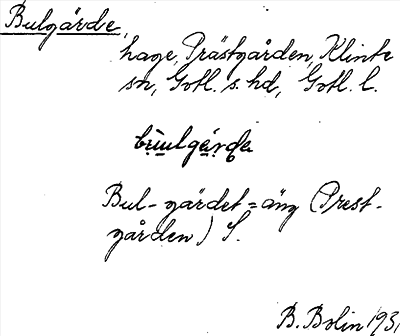 Bulgärde,
hage, Prästgården, Klinte
sn, Gotl. s. hd, Gotl. l.
Bul-gärdet = äng (Prest-
gården) S.
B. Bolin 193